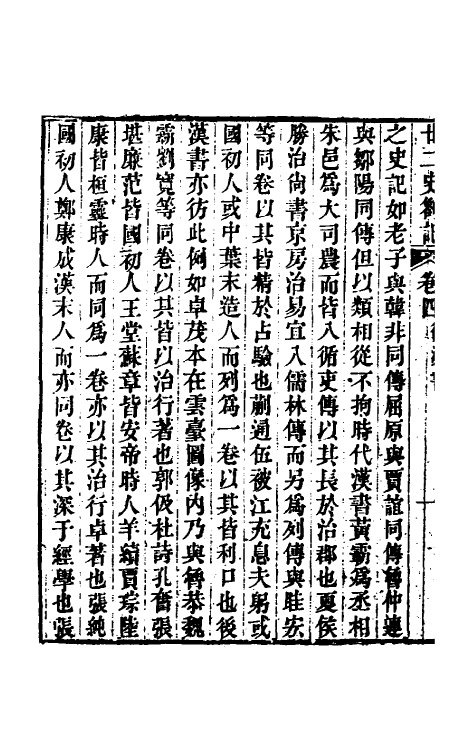 廿二史劄記 卷四 後漢書
之史記如老子與韓非同傳屈原與賈誼同傳魯仲連
與鄒陽同傳但以類相從不拘時代漢書黃霸爲丞相
朱邑爲大司農而皆入循吏傳以其長於治郡也夏侯
勝治尚書京房治易宜入儒林傳而另爲列傳與眭宏
等同卷以其皆精於占驗也蒯通伍被江充息夫躬或
國初人或中葉末造人而列爲一卷以其皆利口也後
漢書亦彷此例如卓茂本在雲臺圖像內乃與魯恭魏
霸劉寬等同卷以其皆以治行著也郭伋杜詩孔奮張
堪廉范皆國初人王堂蘇章皆安帝時人羊續賈琮陸
康皆桓靈時人而同爲一卷亦以其治行卓著也張純
國初人鄭康成漢末人而亦同卷以其深于經學也張